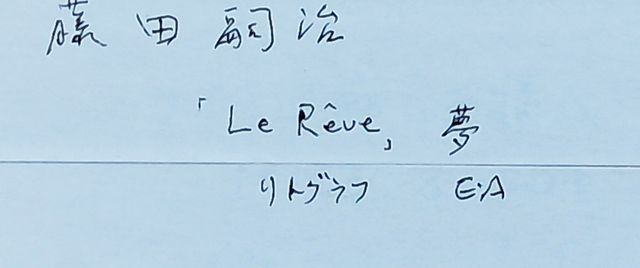 藤田嗣治
「Le Rêve」 夢
リトグラフ E.A